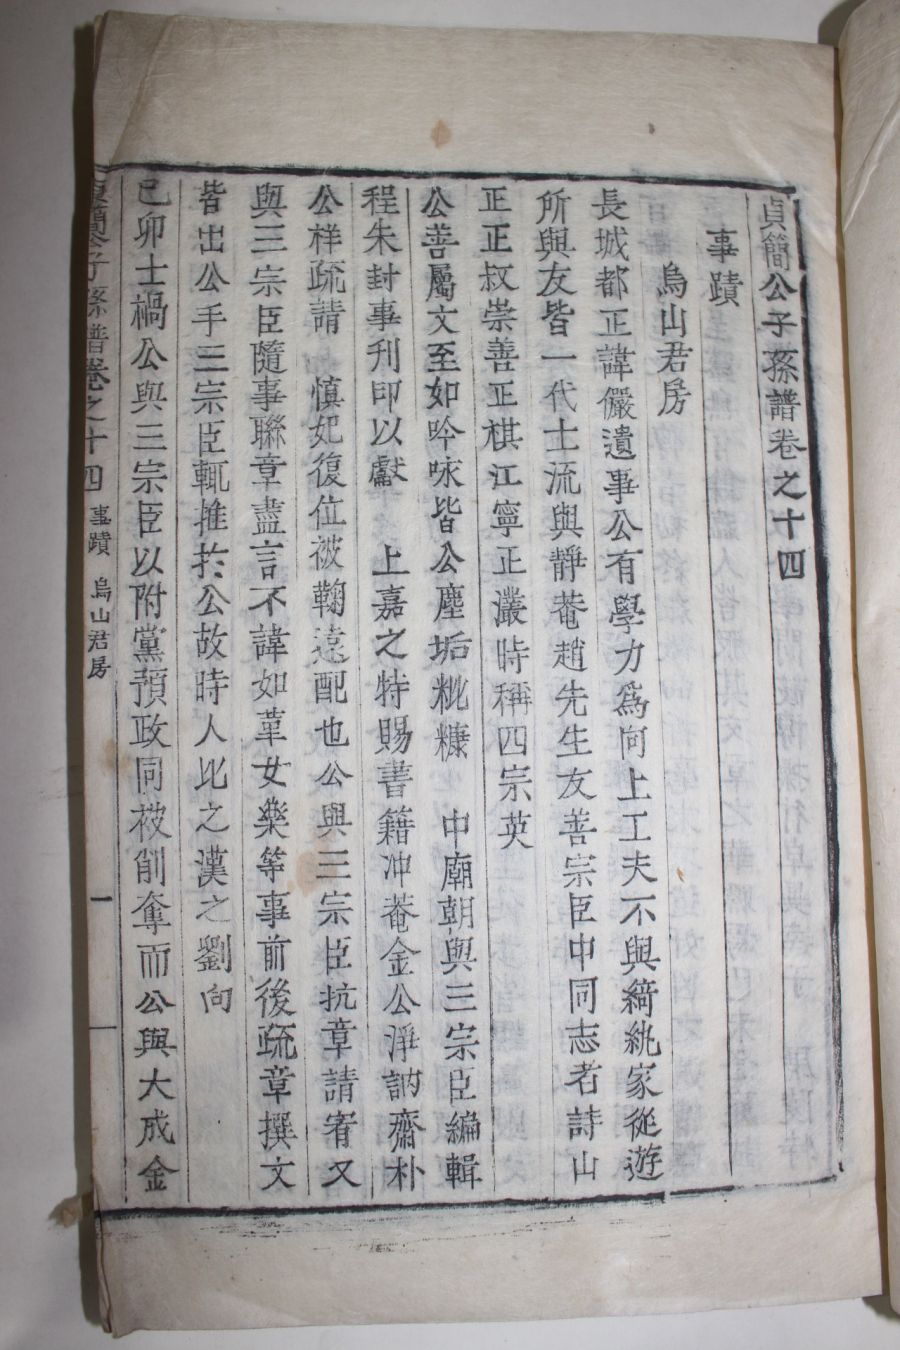 貞簡公子孫譜卷之十四
事蹟
烏山君房
長城都正諱儼遺事公有學力爲向上工夫不與綺紈家從遊
所與友皆一代士流與靜菴趙先生友善宗臣中同志者詩山
正正叔崇善正棋江寧正灇時稱四宗英
公善屬文至如吟咏皆公塵垢粃糠 中廟朝與三宗臣編輯
程朱封事刋印以獻 上嘉之特賜書籍冲菴金公淨訥齋朴
公祥疏請 愼妃復位被鞫遠配也公與三宗臣抗章請宥又
與三宗臣隨事聯章盡言不諱如革女樂等事前後疏章撰文
皆出公手三宗臣輒推於公故時人比之漢之劉向
己卯士禍公與三宗臣以附黨預政同被削奪而公與大成金
貞簡公子孫譜卷之十四 事蹟 烏山君房 一